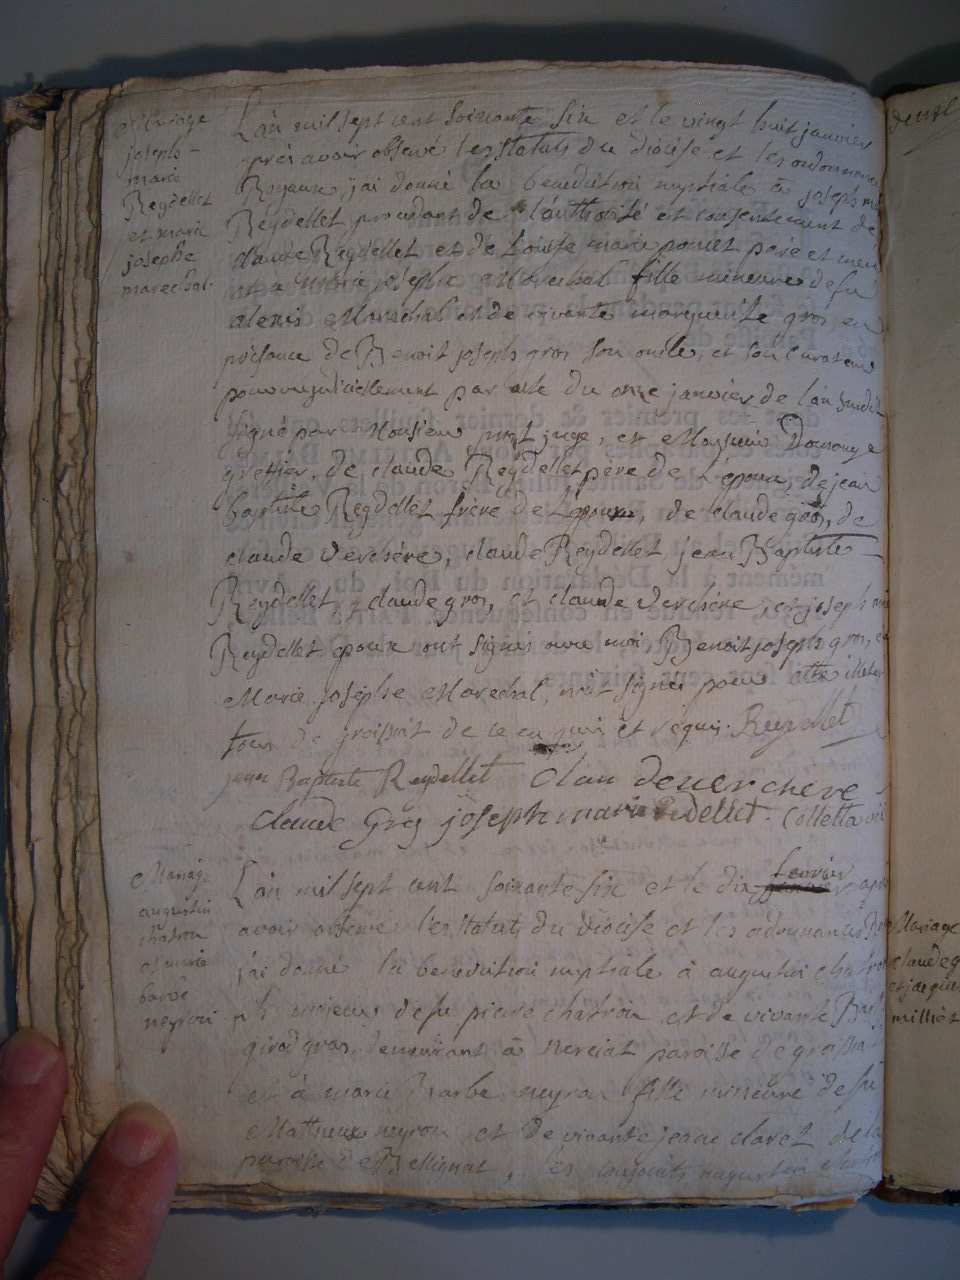 Mariage
joseph-
marie
Reydellet
et marie
josephe
marechal
L'an mil sept cent soixante six et le vingt huit janvier
près avoir observé les statuts du diocèse et les ordonnances
Royaux, j'ai donné la benediction nuptiale à joseph m
Reydellet procedant de l'authorité et consentement de
claude Reydellet et de Louise marie poncet père et mere
et à marie josephe Marechal fille mineure de fu
alexis Marechal et de vivante marguerite gros en
présence de Benoit joseph gros son oncle, et son curateur
pourvu judiciellement par acte du onze janvier de l'an susdit
signé par Monsieur juge, et Monsieur
greffier, de claude Reydellet père de l'époux, de jean
baptiste Reydellet frère de l'époux, de claude gros, de
claude verchère, claude Reydellet, jean Baptiste
Reydellet, claude gros, et claude verchère, et joseph m
Reydellet epoux ont signés avec moi Benoit joseph gros, et
Marie josephe Marechal, n'ont signés pour être illeter
tous de groissiat de ce enquis et requis. Reydellet
jean Baptiste Reydellet Clau deuerchere
claude Gros joseph marie Redellet. Colletta vic
Mariage
augustin
chatron
et marie
barbe
neyron
L'an mil sept cent soixante six et le dix fevrier apre
avoir observé les statuts du diocèse et les ordonnances Roy
j'ai donné la benediction nuptiale à augustin chatron
fils majeur de fu pierre chatron et de vivante
girod gros, demeurant à Nerciat paroisse de groissia
et à marie Barbe neyron fille mineure de fu
Matthieu neyron et de vivante jeanne claret de la
paroisse de Bellignat, les conjoints augustin chatron
Mariage
claude g
et jacqu
milliet